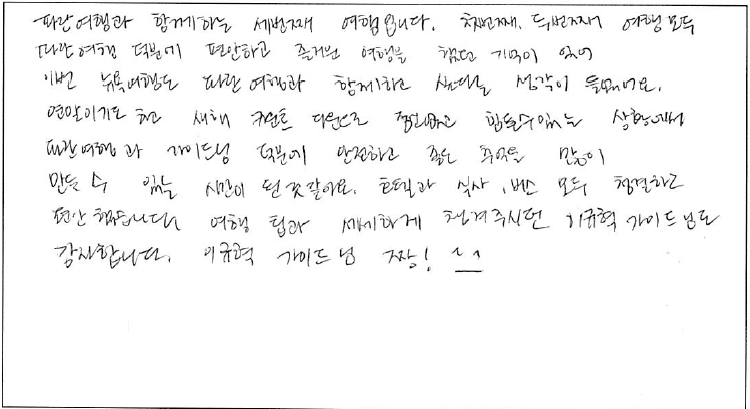 파란여행과 함께하는 세번째 여행입니다. 첫번째, 두번째 여행 모두
파란여행 덕분에 편안하고 즐거운 여행을 했던 기억이 있어
이번 뉴욕여행도 파란여행과 함께하고 싶다는 생각이 들었어요.
연말이기도 하고 새해 카운트 다운으로 정신없고 힘들수있는 상황에서
파란여행과 가이드님 덕분에 안전하고 좋은 추억을 많이
만들 수 있는 시간이 된것같아요. 호텔과 식사, 버스 모두 청결하고
편안했습니다. 여행 팁과 세세하게 챙겨주시던 이규혁 가이드님도
감사합니다. 이규혁 가이드님 짱! ^^